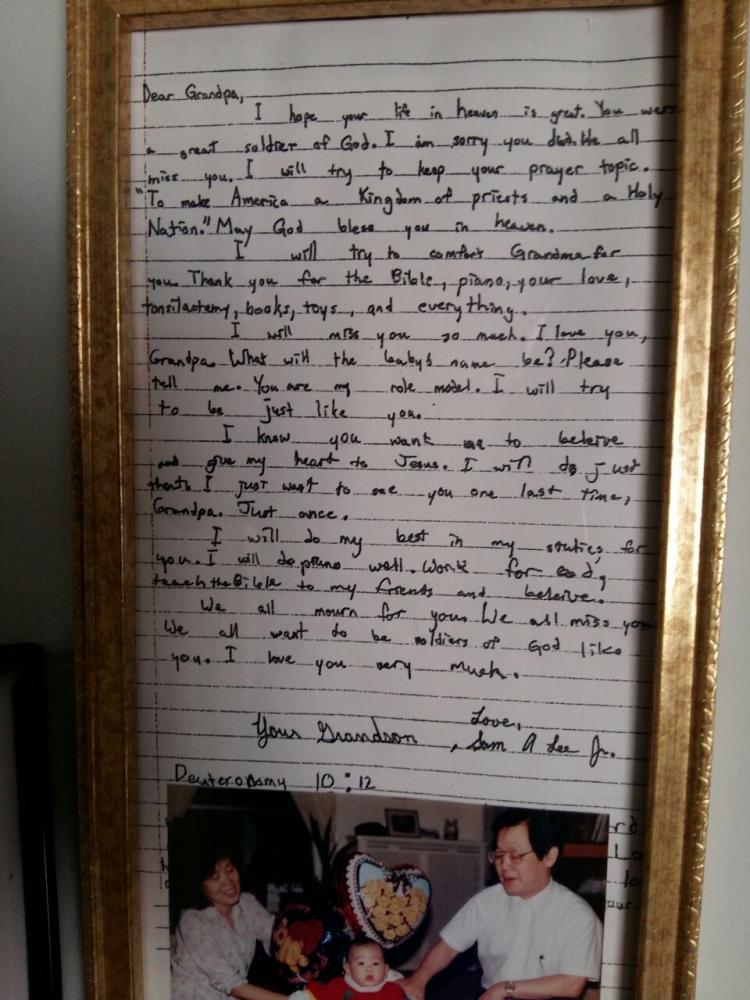 Dear Grandpa,
I hope your life in heaven is great. You were
a great soldier of God. I am sorry you died. We all
miss you. I will try to keep your prayer topic.
"To make America a Kingdom of priests and a Holy
Nation." May God bless you in heaven.
I will try to comfort Grandma for
you. Thank you for the Bible, piano, your love,
tonsilactemy, books, toys, and everything.
I will miss you so much. I love you,
Grandpa. What will the baby's name be? Please
tell me. You are my role model. I will try
to be just like you.
I know you want me to beleive
and give my heart to Jesus. I will do just
that. I just want to see you one last time,
Grandpa. Just once.
I will do my best in my studies for
you. I will do piano well. Work for God,
teach the Bible to my friends and beleive.
We all mourn for you. We all miss you
We all want to be soldiers of God like
you. I love you very much.
Love,
Your Grandson, Sam A Lee Jr.
Deuteronomy 10:12